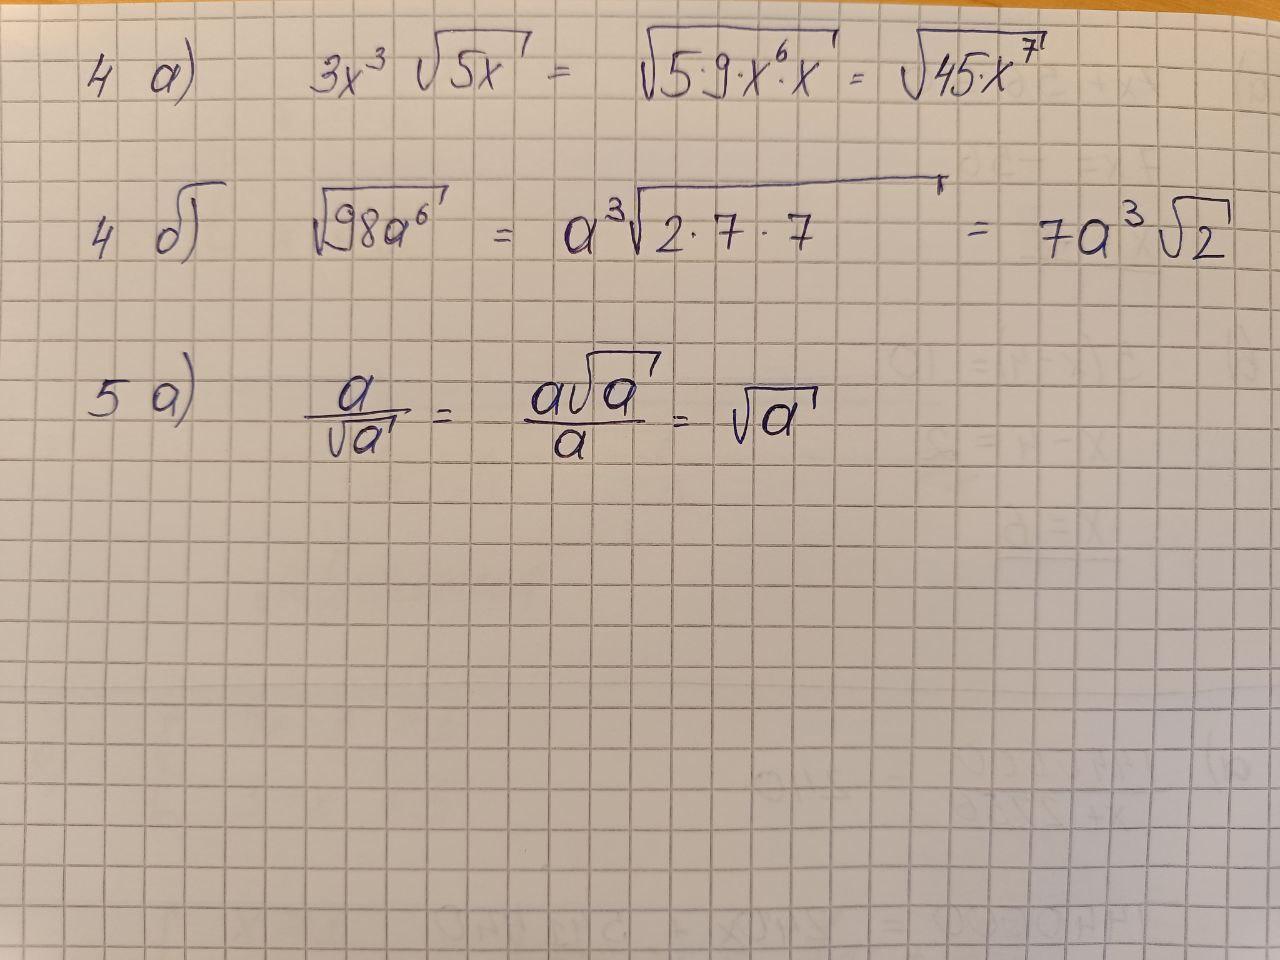 4 а) 3x³ √5x = √5·9·x⁶·x = √45·x⁷
4 б) √98a⁶ = a³√2·7·7 = 7a³√2
5 а) a/√a = a√a/a = √a